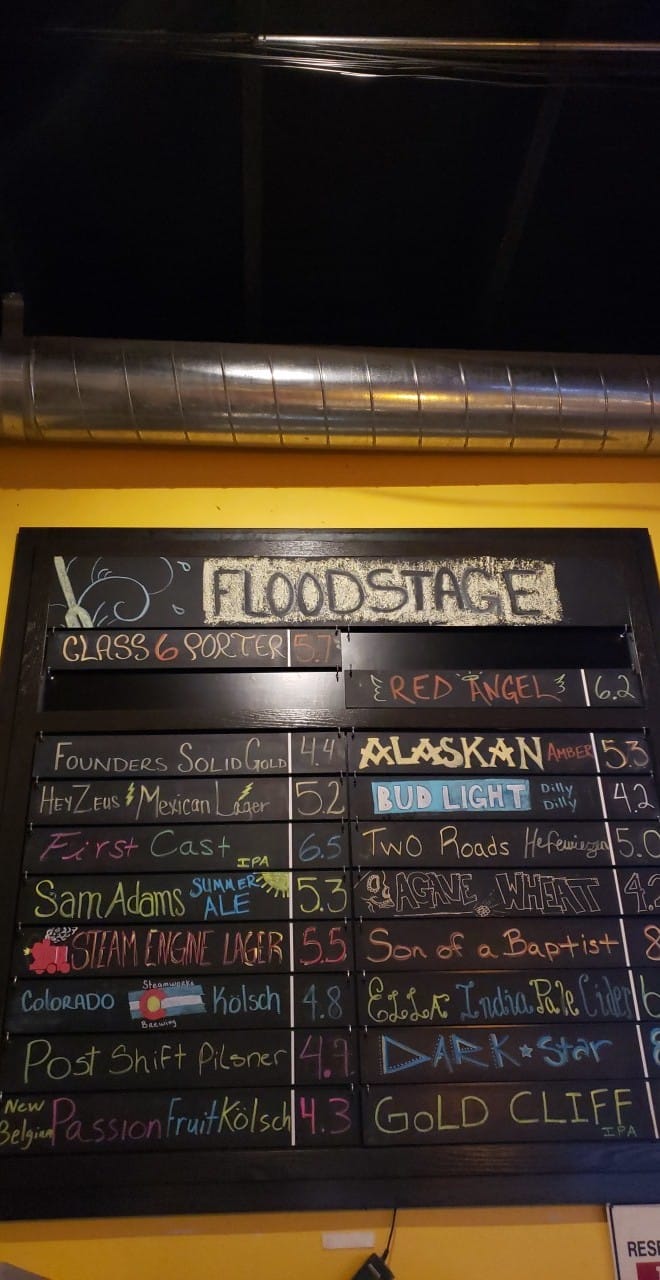 FLOODSTAGE
CLASS 6 PORTER 5.7
RED ANGEL 6.2
FOUNDERS SOLID GOLD 4.4
HEY ZEUS Mexican Lager 5.2
First Cast IPA 6.5
Sam Adams SUMMER ALE 5.3
STEAM ENGINE LAGER 5.5
COLORADO Steamworks Brewing Kölsch 4.8
Post Shift Pilsner 4.7
New Belgian Passion Fruit Kölsch 4.3
ALASKAN AMBER 5.3
BUD LIGHT Dilly Dilly 4.2
Two Roads Hefeweizen 5.0
AGAVE WHEAT 4.2
Son of a Baptist 8
ELLA India Pale Cider 6
DARK Star 8
GOLD CLIFF IPA
RESE